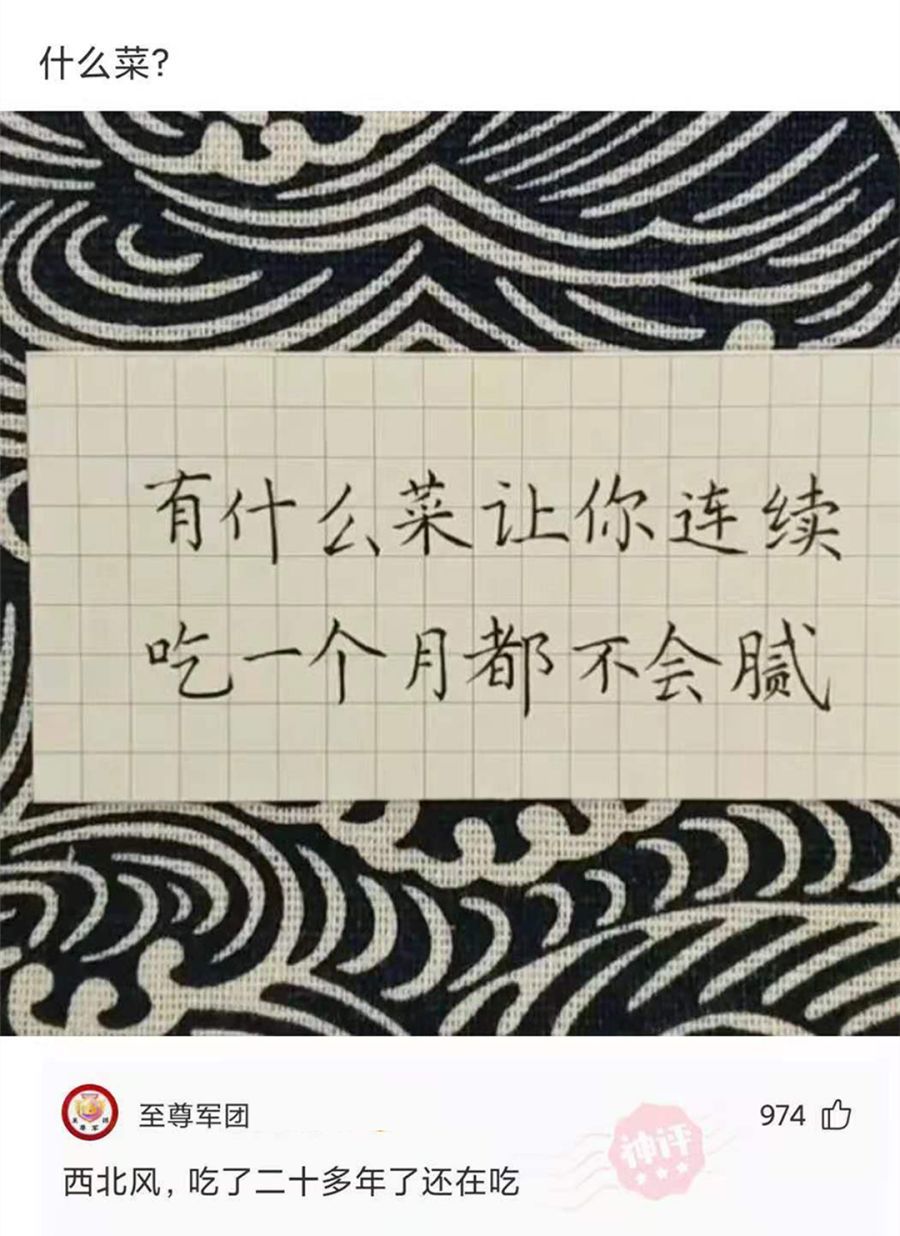 什么菜?
有什么菜让你连续
吃一个月都不会腻
至尊军团
974
西北风, 吃了二十多年了还在吃
神评